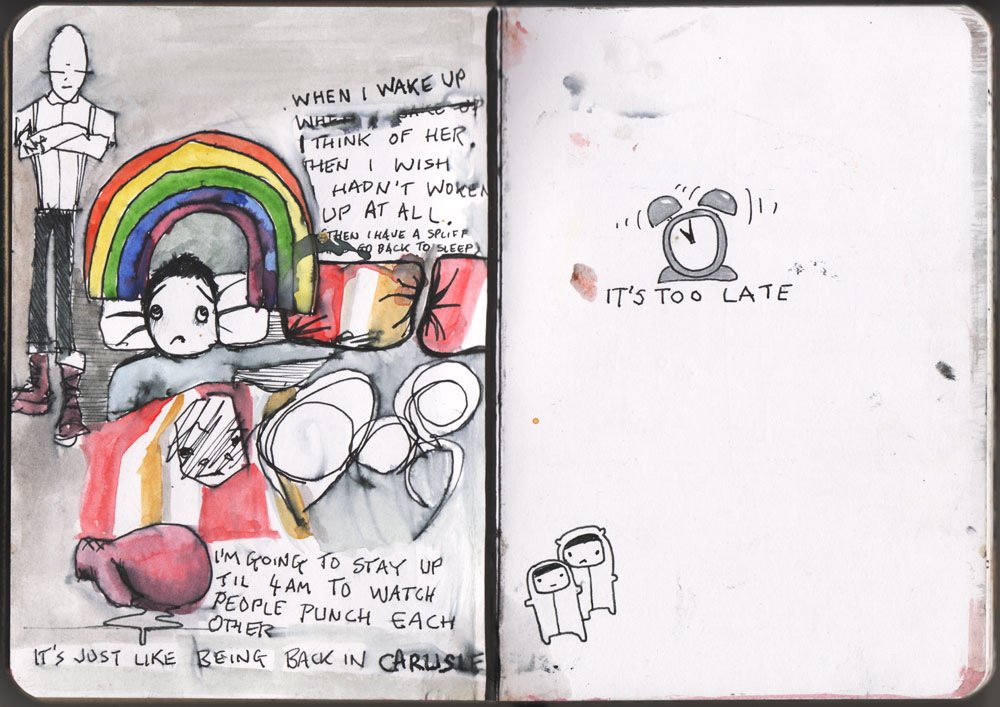 WHEN I WAKE UP
I THINK OF HER.
THEN I WISH
HADN'T WOKEN
UP AT ALL.
(THEN I HAVE A SPLIFF
GO BACK TO SLEEP)
I'M GOING TO STAY UP
TIL 4AM TO WATCH
PEOPLE PUNCH EACH
OTHER
IT'S JUST LIKE BEING BACK IN CARLISLE
IT'S TOO LATE